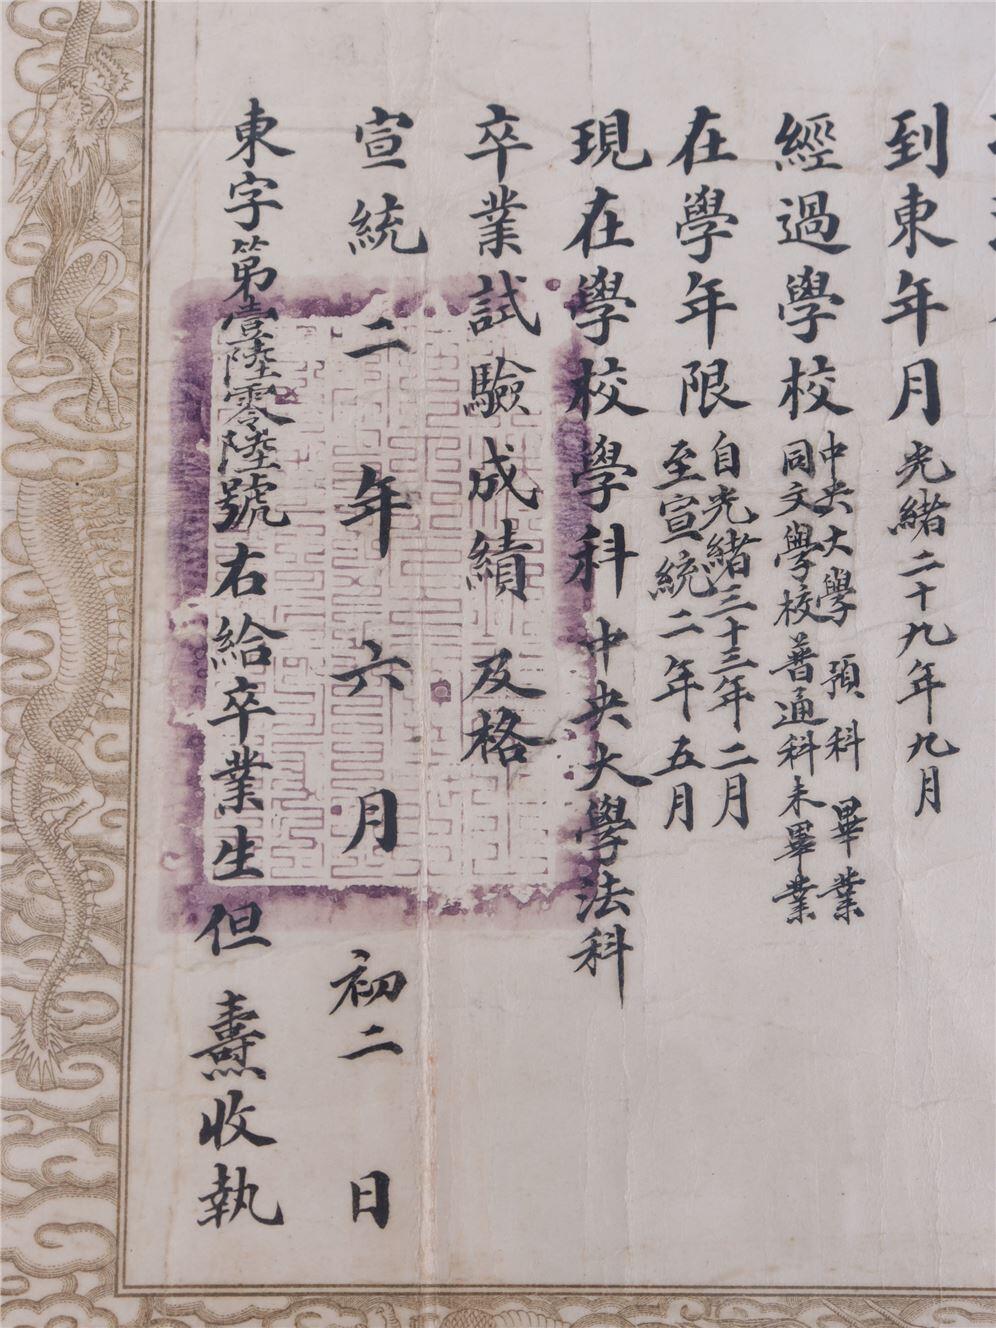 到東年月 光緒二十九年九月
經過學校 中央大學預科畢業
同文學校普通科未畢業
在學年限 自光緒三十三年二月
至宣統二年五月
現在學校學科 中央大學法科
卒業試驗成績 及格
宣統二年六月初二日
東字第壹陸零陸號右給卒業生但燾收執